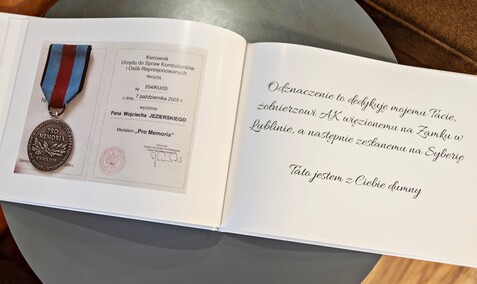 Kierownik
Urzędu do Spraw Kombatantów
i Osób Represjonowanych
decyzją
Nr 554/KU/05
z dnia 7 października 2005 r.
wyróżnia
Pana Wojciecha JEZIERSKIEGO
Medalem „Pro Memoria”
PRO
MEMORIA
Odznaczenie to dedykuję mojemu Tacie,
żołnierzowi AK więzionemu na Zamku w
Lublinie, a następnie zesłanemu na Syberię
Tato jestem z Ciebie dumny